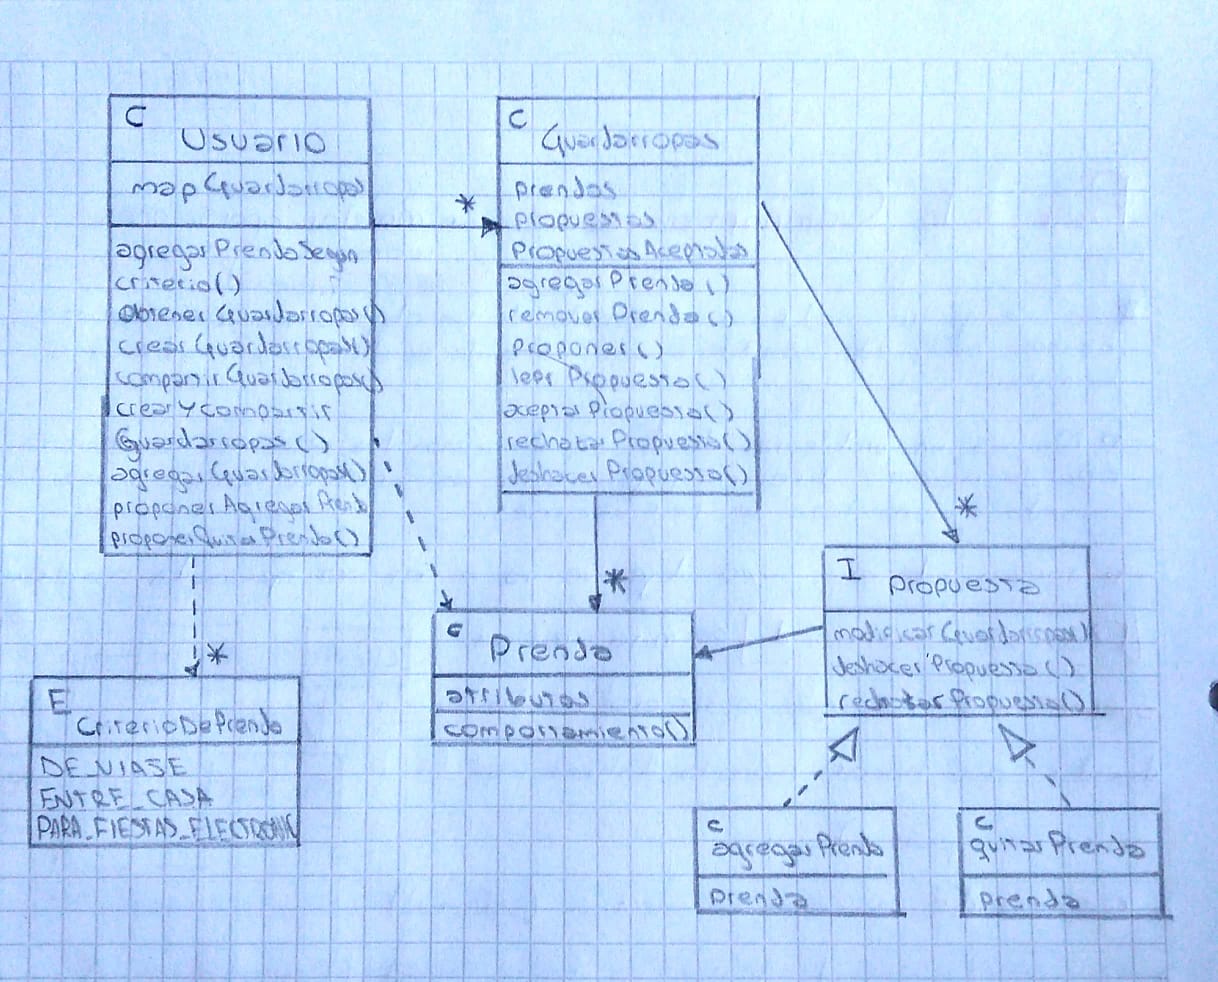 C
Usuario
map Guardarropas
agregarPrendaSegún
criterio()
obtener Guardarropas()
crear Guardarropas()
compartir Guardarropas()
crearYcompartir
Guardarropas()
agregar Guardarropas()
proponer Agregar Prenda
proponer Quitar Prenda()
C
Guardarropas
prendas
propuestas
PropuestasAceptadas
agregar Prenda()
remover Prenda()
proponer()
leer Propuesta()
aceptar Propuesta()
rechazar Propuesta()
deshacer Propuesta()
*
*
*
*
I
propuesta
modificar Guardarropas()
deshacer Propuesta()
rechazar Propuesta()
C
Prenda
atributos
comportamiento()
E
CriterioDePrenda
DE_VIAJE
ENTRE_CASA
PARA_FIESTAS_ELECTRONIC
C
agregar Prenda
prenda
C
quitar Prenda
prenda